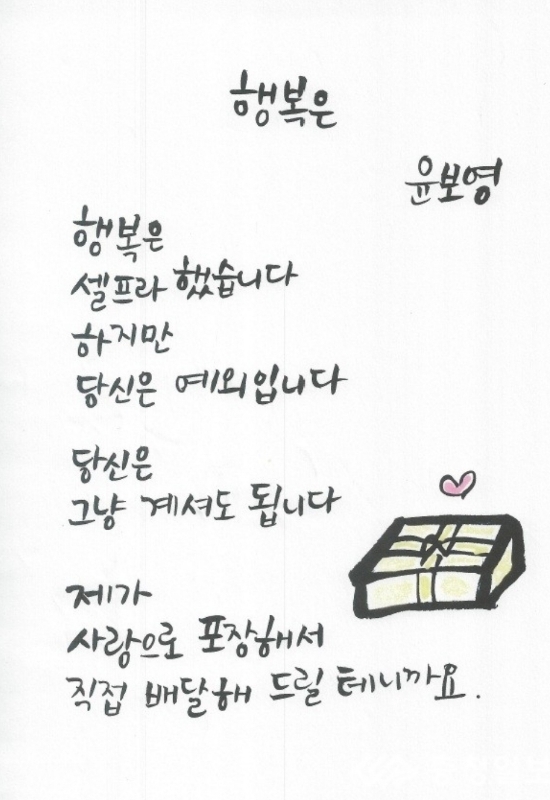 행복은
윤보영
행복은
셀프라 했습니다
하지만
당신은 예외입니다
당신은
그냥 계셔도 됩니다
제가
사랑으로 포장해서
직접 배달해 드릴 테니까요.